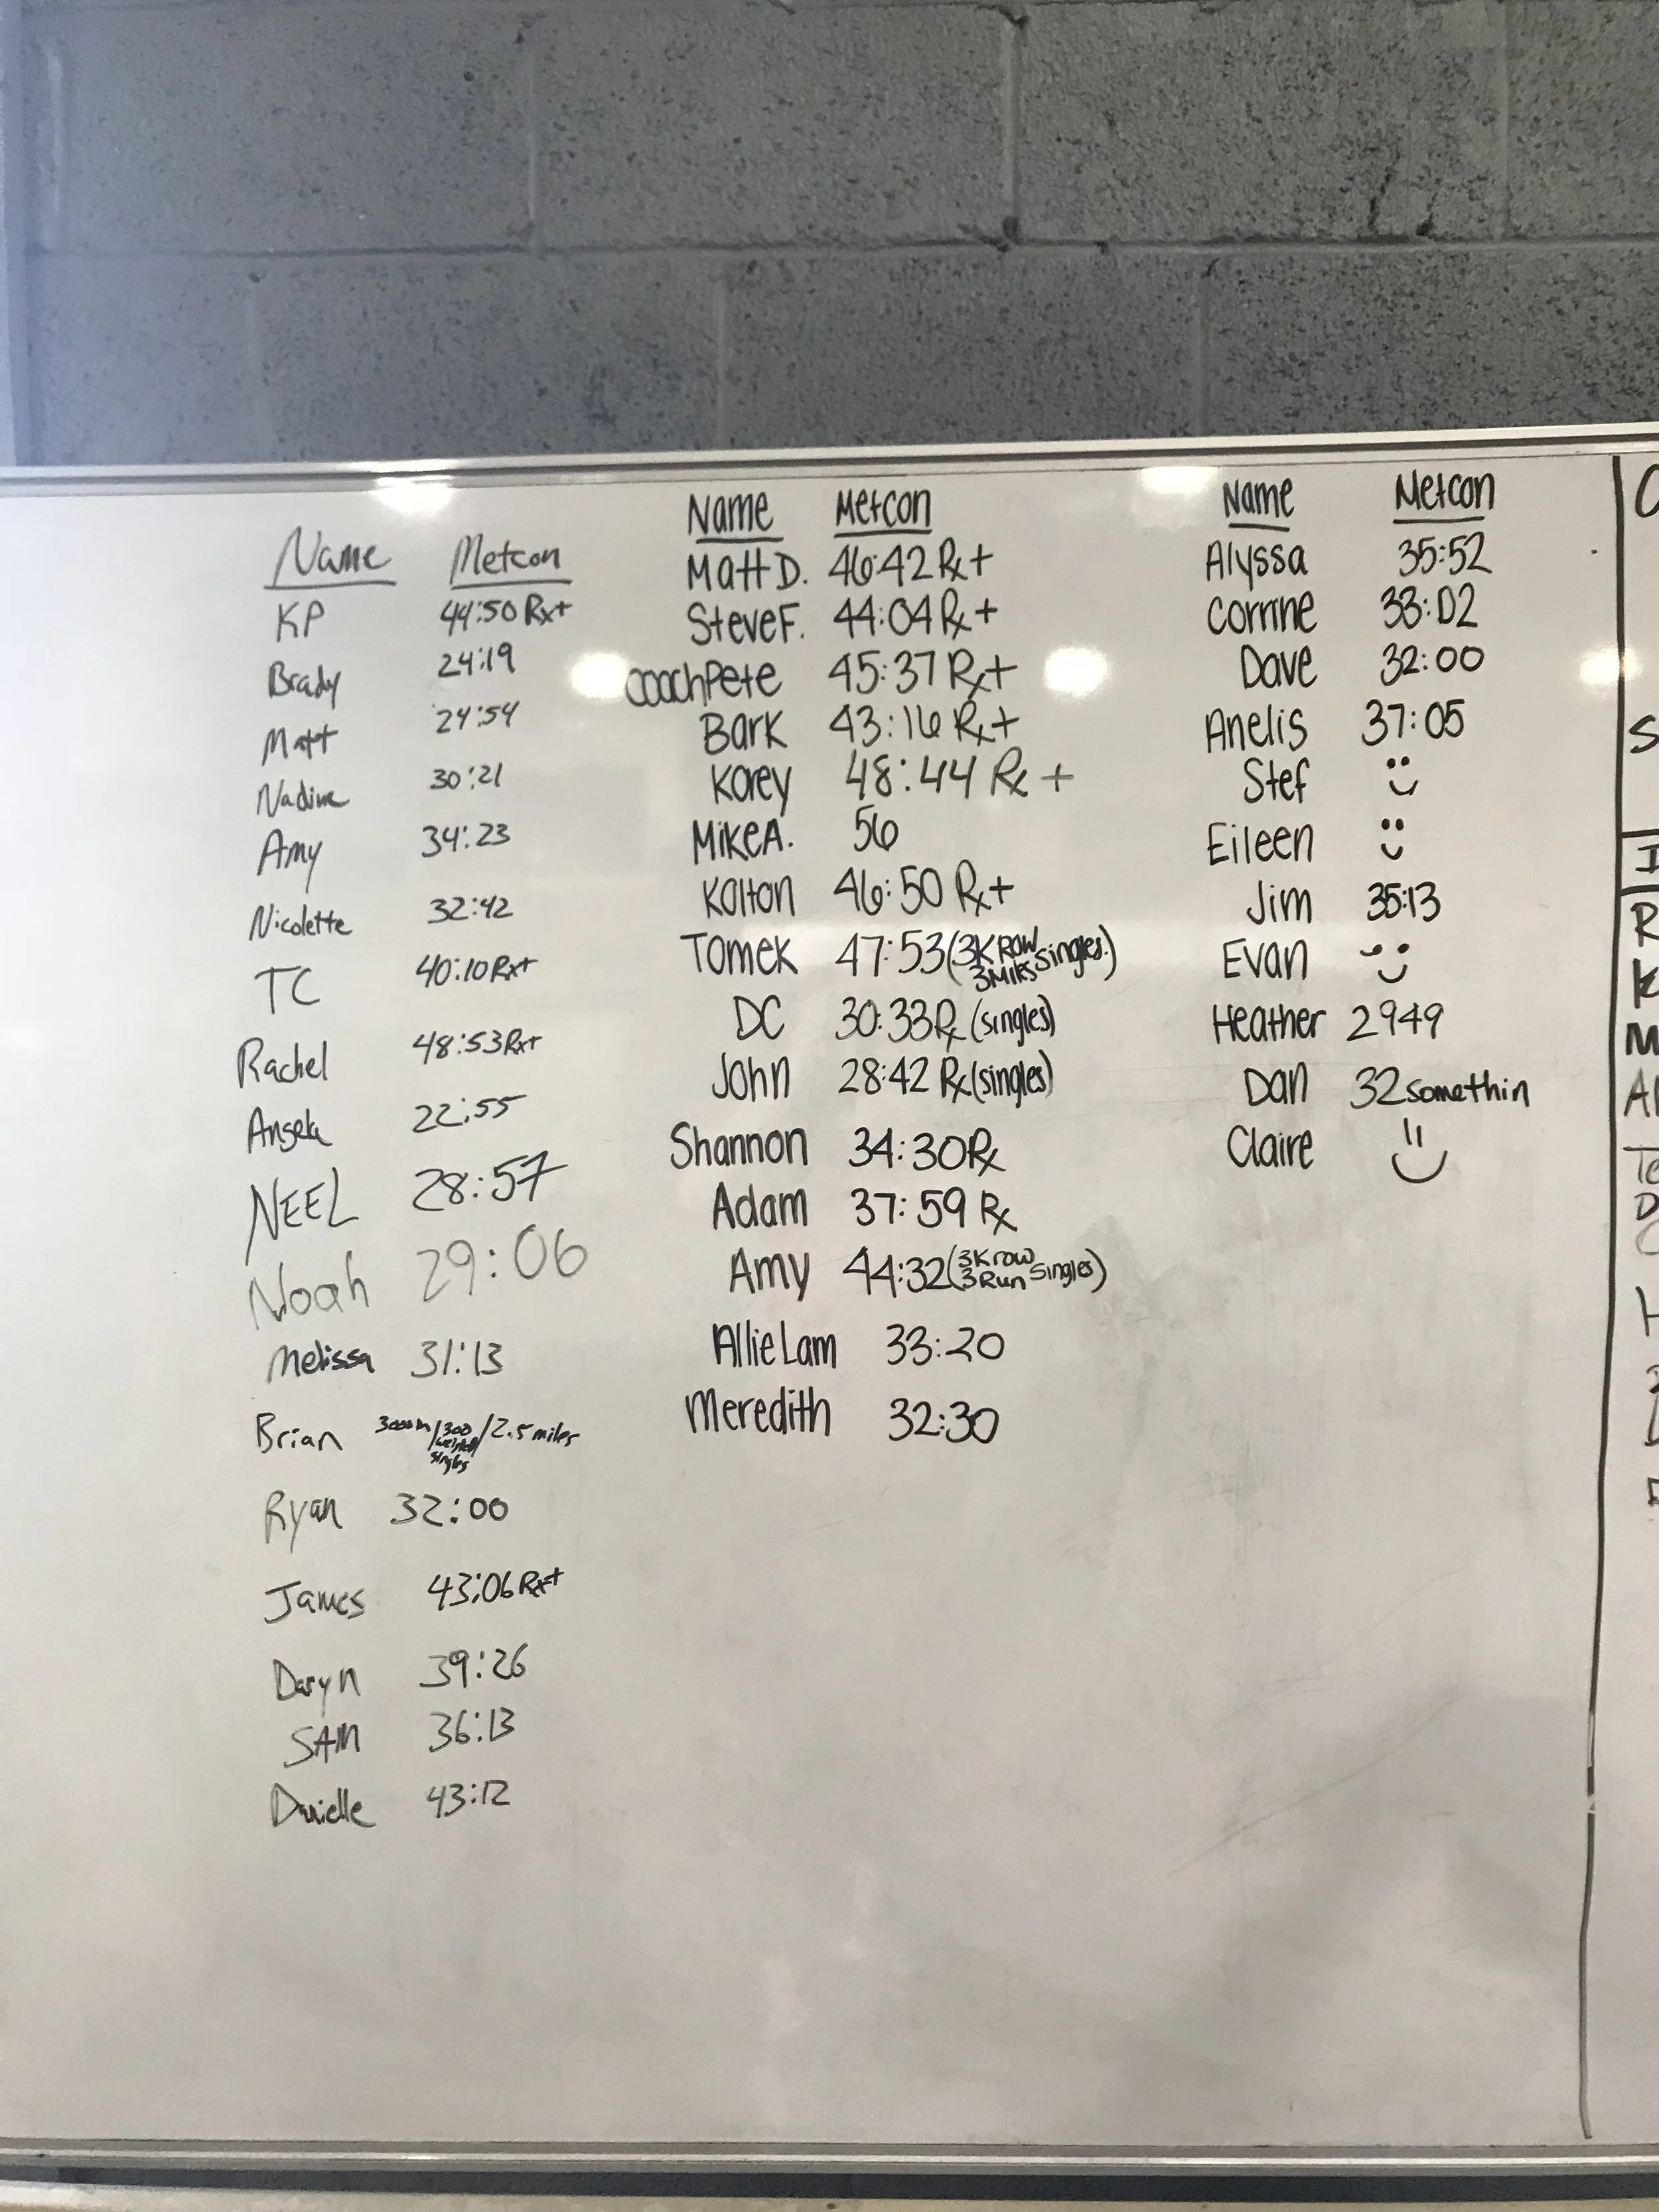 Name Metcon
KP 44:50 Rx+
Brady 24:19
Matt 24:54
Nadine 30:21
Amy 34:23
Nicolette 32:42
TC 40:10 Rx+
Rachel 48:53 Rx+
Angela 22:55
NEEL 28:57
Noah 29:06
Melissa 31:13
Brian 3000m/300 weighted singles/2.5 miles
Ryan 32:00
James 43:06 Rx+
Daryn 39:26
SAM 36:13
Danielle 43:12
Name Metcon
Matt D. 46:42 Rx+
Steve F. 44:04 Rx+
Coach Pete 45:37 Rx+
Bark 43:16 Rx+
Korey 48:44 Rx +
Mike A. 56
Kalton 46:50 Rx+
Tomek 47:53 (3K Row 3 Miles singles.)
DC 30:33 Rx (singles)
John 28:42 Rx (singles)
Shannon 34:30 Rx
Adam 37:59 Rx
Amy 44:32 (3K row 3 Run singles)
Allie Lam 33:20
Meredith 32:30
Name Metcon
Alyssa 35:52
Corrine 33:02
Dave 32:00
Anelis 37:05
Stef
Eileen
Jim 35:13
Evan
Heather 2949
Dan 32 somethin
Claire